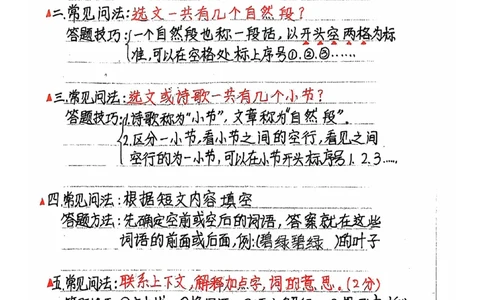 ▲二.常见问法:选文一共有几个自然段?
答题技巧:{一个自然段也称一段话,以开头空两格为标
准,可以在空格处标上序号①.②.③……
▲三.常见问法:选文或诗歌一共有几个小节?
答题技巧:{1.诗歌称为“小节”,文章称为“自然段”。
2.区分一小节,看小节之间的空行,看见之间
空行的为一小节,可以在小节开头标序号1.2.3.…
▲四.常见问法:根据短文内容填空
答题方法:先确定空前或空后的词语,答案就在这些
词语的前面或后面,例:(碧绿碧绿 )的叶子
▲五.常见问法:联系上下文,解释加点字,词的意思。(2分)